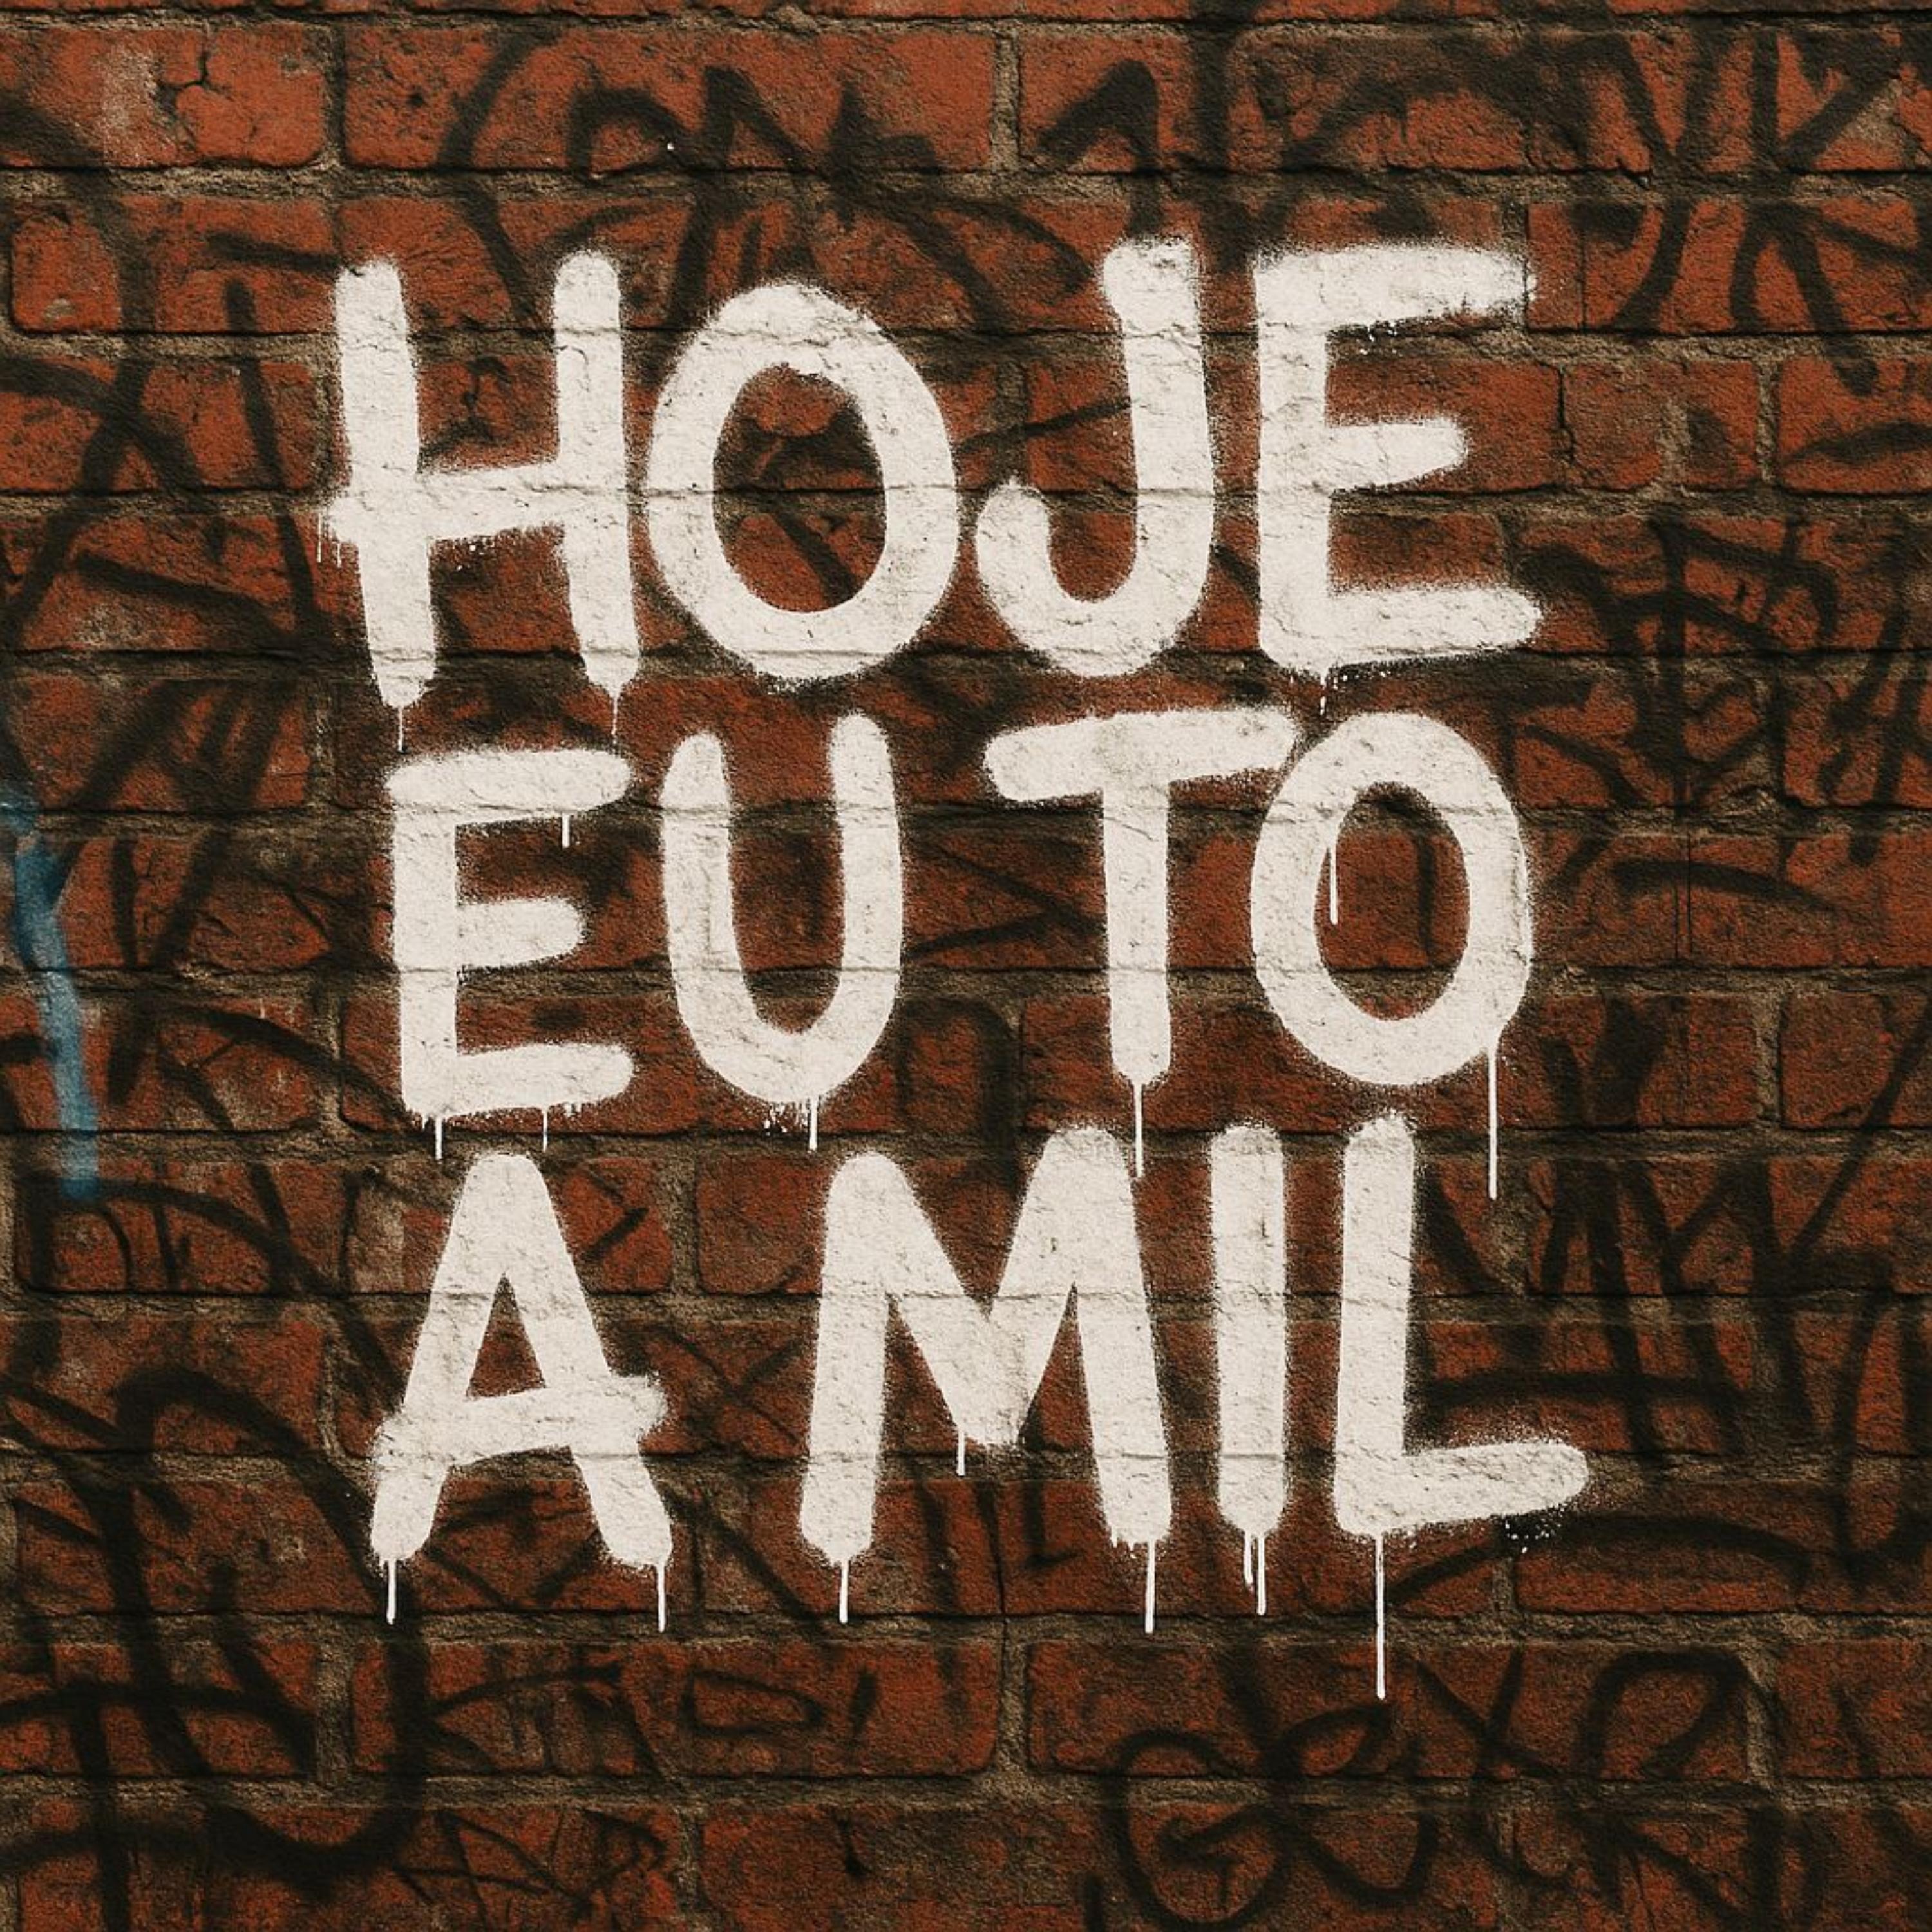 HOJE
EU TO
A MIL